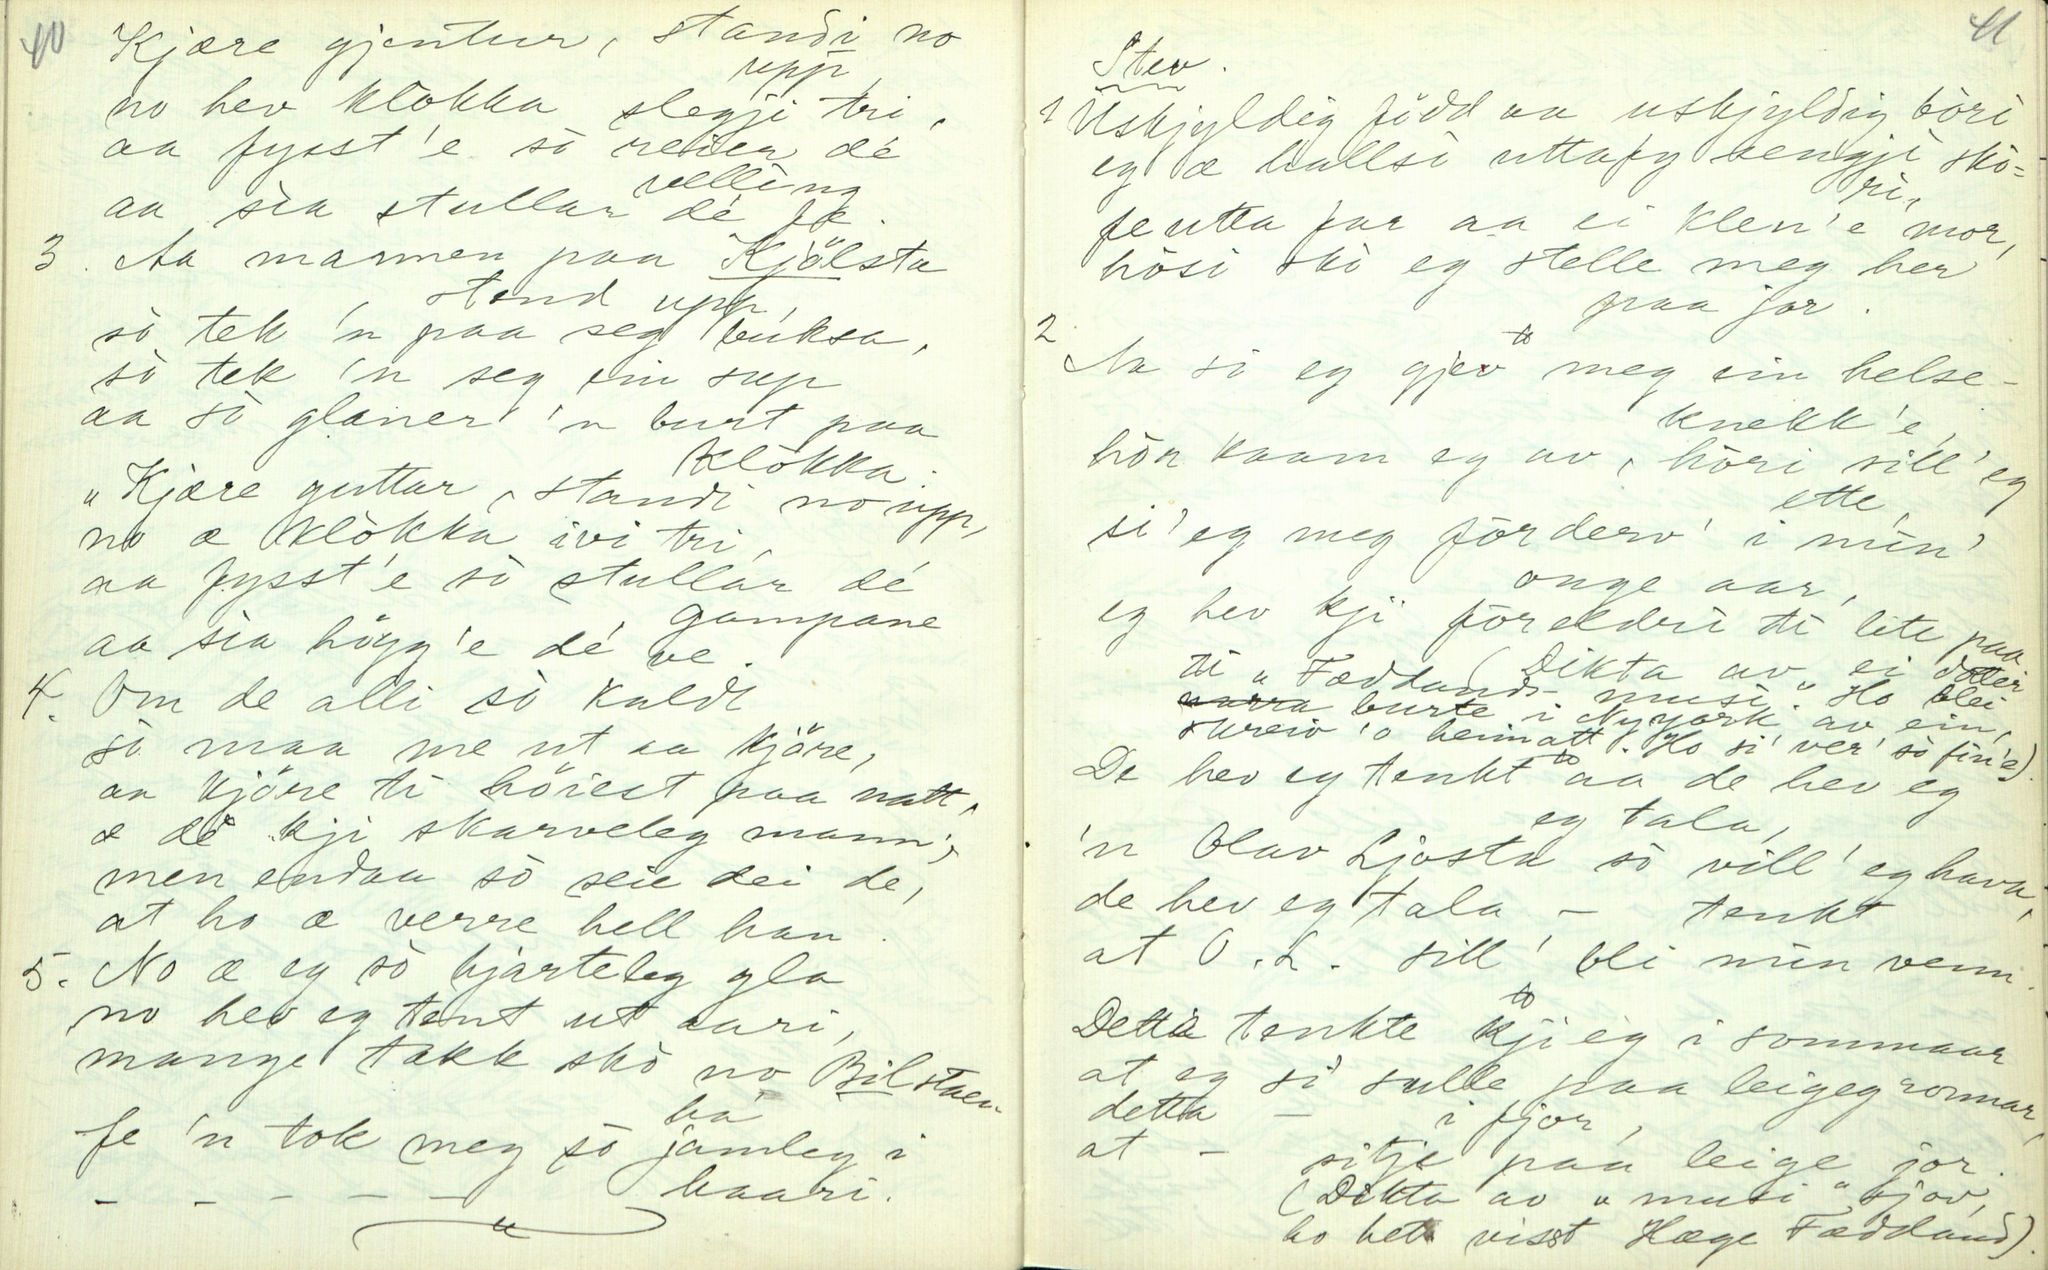 40
Kjære gjentur, standi no
upp,
no hev klòkka slegji tri,
aa fysst'e sò reier dé
velling
aa sia stullar dé fe.
3. Aa mannen paa Kjölsta
stend upp,
sò tek 'n paa seg buksa,
sò tek 'n seg ein sup
aa sò glaner 'n burt paa
klòkka.
"Kjære guttar, standi no upp,
no æ klòkka ivi tri,
aa fysst'e sò stullar dé
gampane
aa sia högg'e dé ve.
4. Om de alli sò kaldt
sò maa me ut aa kjöre,
aa kjöre ti höiest paa natt,
æ dé kji skarveleg mann',
men endaa sò seie dei de,
at ho æ verre hell han.
5. No æ eg sò hjarteleg gla
no hev eg tent ut aari,
mange takk skò no Bilstaen
fe 'n tok meg sò jamleg i
há
– – – – – haari.
41
Stev.
1 Uskjyldig född aa uskjyldig bòri
eg æ hallsò uttafy sengji skò=
ri,
fe utta far aa ei klen'e mor,
hòsi skò eg stelle meg her
paa jor.
2
Aa sò eg gjev meg ein helse-
knekk'e,
hòr kaam eg av, hòri sill' eg
ette,
si' eg meg fòrderv' i min'
onge aar,
eg hev kji fòreldri ti lite paa
(Dikta av ei dotter
ti "Fæddands-musi". Ho blei
burte i Nyyork av ein,
skreiv 'o heimatt. Ho si' ver' sò fin'e).
De hev eg tenkt aa de hev eg
eg tala,
'n Olav Ljosta sò vill' eg hava,
de hev eg tala – tenkt
at O. L. sill' bli min venn.
Detta tenkte kji eg i sommaar
at eg sò sulle paa leigegronnar,
detta – i fjor,
at – sitje paa leige jor.
(Dikta av "musi" sjov,
ho het visst Hæge Fæddand).